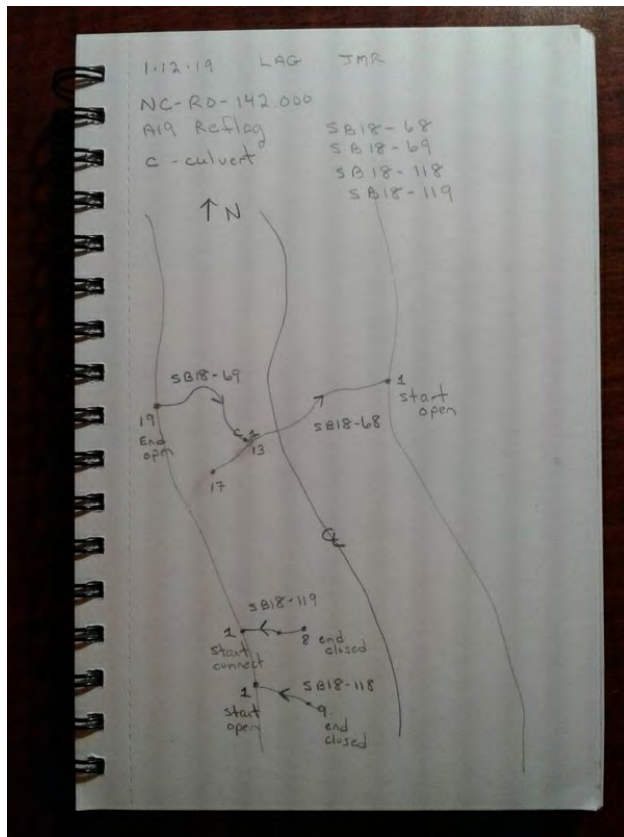 1.12.19 LAG JMR
NC-RD-142.000
A19 Reflag
C - culvert
SB18-68
SB18-69
SB18-118
SB18-119
↑ N
SB18-69
1
start
open
19
End
open
C 1
13
SB18-68
17
℄
SB18-119
1
start
connect
8 end
closed
SB18-118
1
start
open
9
end
closed